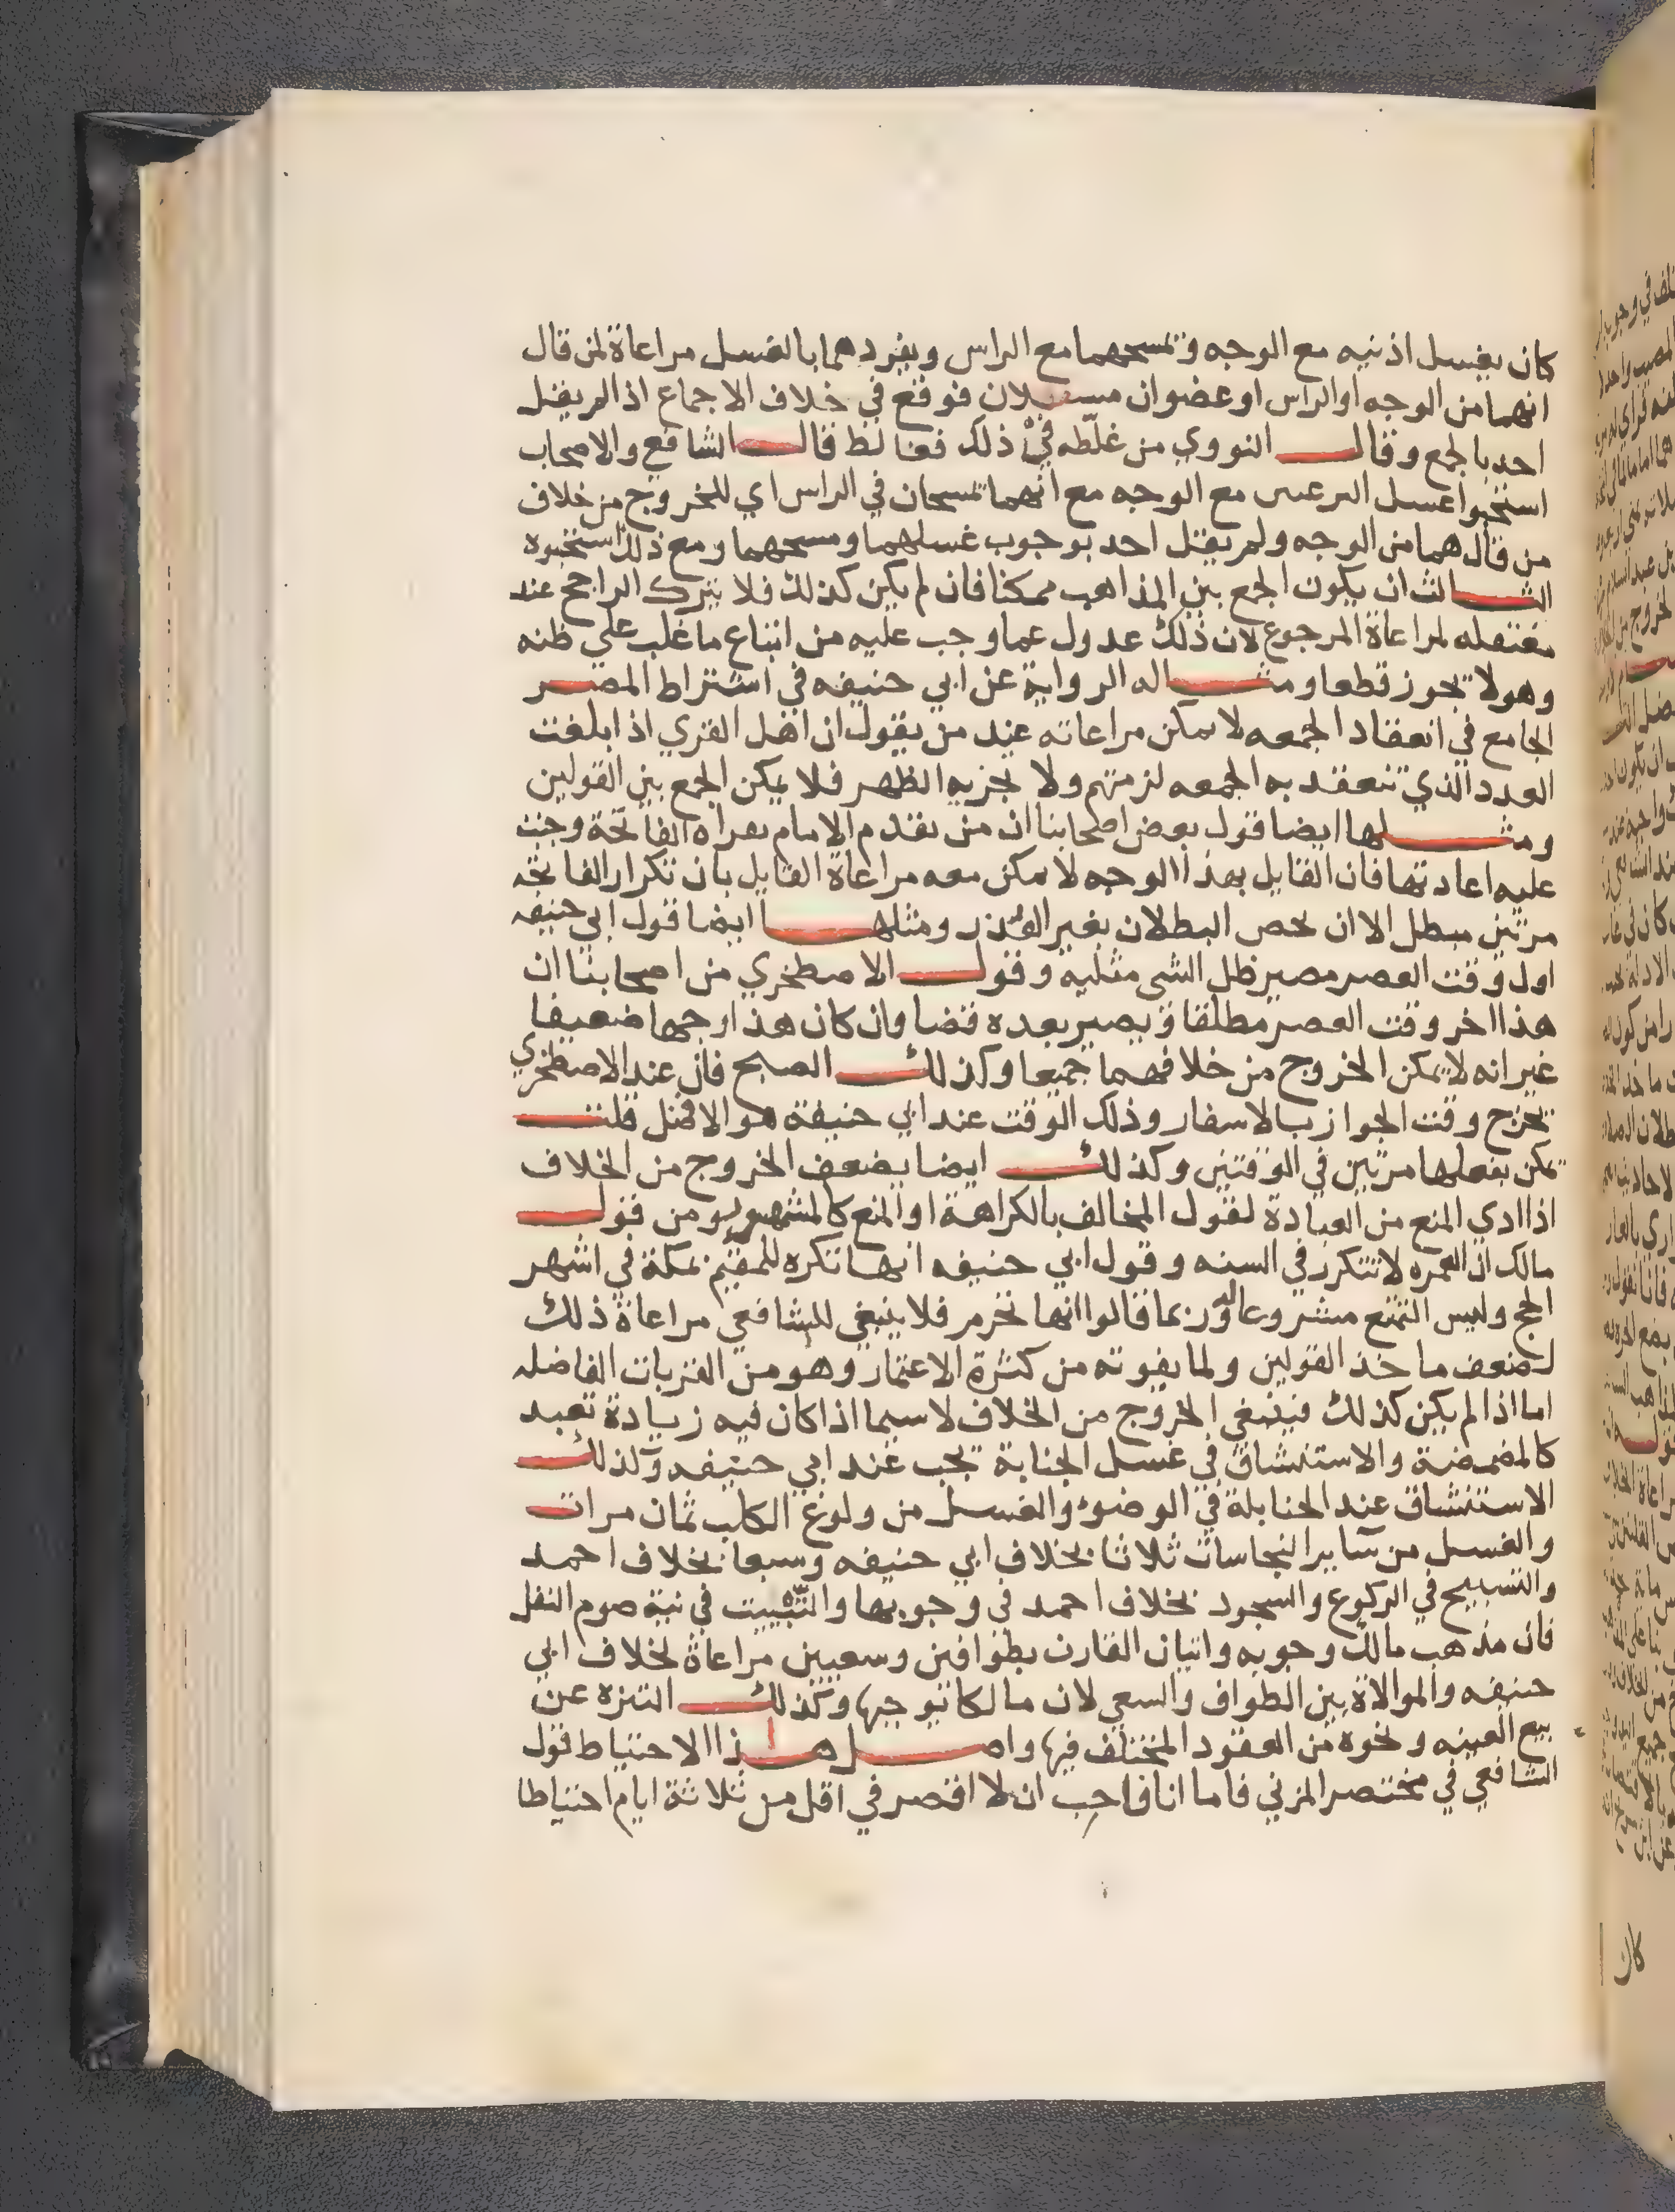 كان يغسل اذنيه مع الوجه و تمسحهما مع الراس ويفردهما بالغسل مراعاة لمن قال
انهما من الوجه او الراس او عضوان مستقلان فوقع في خلاف الاجماع اذ لم يقل
احد بالجمع وقال النووي من غلّطه في ذلك فغالط قال الشافعي والاصحاب
استحبوا غسل النزعتين مع الوجه مع انهما تمسحان في الراس اي للخروج من خلاف
من قال هما من الوجه ولم يقل احد بوجوب غسلهما ومسحهما ومع ذلك استحبوه
الثالث ان يكون الجمع بين المذاهب ممكنا فان لم يكن كذلك فلا يترك الراجح عند
معتقله لمراعاة المرجوع لان ذلك عدول عما وجب عليه من اتباع ما غلب علي ظنه
وهو لا يجوز قطعا ومثاله الرواية عن ابي حنيفه في اشتراط المصر
الجامع في انعقاد الجمعه لا يمكن مراعاته عند من يقول ان اهل القري اذا بلغت
العدد الذي تنعقد به الجمعه لزمتهم ولا يجزيه الظهر فلا يمكن الجمع بين القولين
ومثلها ايضا قول بعض اصحابنا ان من تقدم الامام بقراه الفاتحة وجبت
عليه اعادتها فان القايل بهذا الوجه لا يمكن معه مراعاة القايل بان تكرار الفاتحه
مرتين مبطل الا ان يخص البطلان بغير العذر ومثلها ايضا قول ابي حنيفه
اول وقت العصر مصير ظل الشي مثليه وقول الاصطخري من اصحابنا ان
هذا اخر وقت العصر مطلقا و يصير بعده قضا وان كان هذا وجها ضعيفا
غير انه لا يمكن الخروج من خلافهما جميعا وكذلك الصبح فان عند الاصطخري
يخرج وقت الجواز بالاسفار وذلك الوقت عند ابي حنيفة هو الافضل قلت
يمكن بفعلها مرتين في الوقتين وكذلك ايضا يضعف الخروج من الخلاف
اذا ادي المنع من العبادة لقول المخالف بالكراهة او المنع كالمشهور من قول
مالك ان العمره لا تتكرر في السنه وقول ابي حنيفه انها تكره للمقيم بمكة في اشهر
الحج وليس التمتع مشروعا له وربما قالوا انها تحرم فلا ينبغي للشافعي مراعاة ذلك
لضعف ماخذ القولين ولما يفوته من كثرة الاعتمار وهو من القربات الفاضله
اما اذا لم يكن كذلك فينبغي الخروج من الخلاف لا سيما اذا كان فيه زيادة تعبد
كالمضمضة والاستنشاق في غسل الجنابة تجب عند ابي حنيفه وكذلك
الاستنشاق عند الحنابلة في الوضوء والغسل من ولوغ الكلب ثمان مرات
والغسل من ساير النجاسات ثلاثا بخلاف ابي حنيفه وسبعا بخلاف احمد
والتسبيح في الركوع والسجود بخلاف احمد في وجوبها والتبييت في نية صوم النفل
فان مذهب مالك وجوبه واتيان القارن بطوافين وسعيين مراعاة لخلاف ابي
حنيفه والموالاة بين الطواف والسعي لان مالكا يوجبها وكذلك التنزه عن
بيع العينه ونحوه من العقود المختلف فيها واصل هذا الاحتياط قول
الشافعي في مختصر المزني فاما انا فاحب ان لا اقصر في اقل من ثلاثة ايام احتياطا
كان